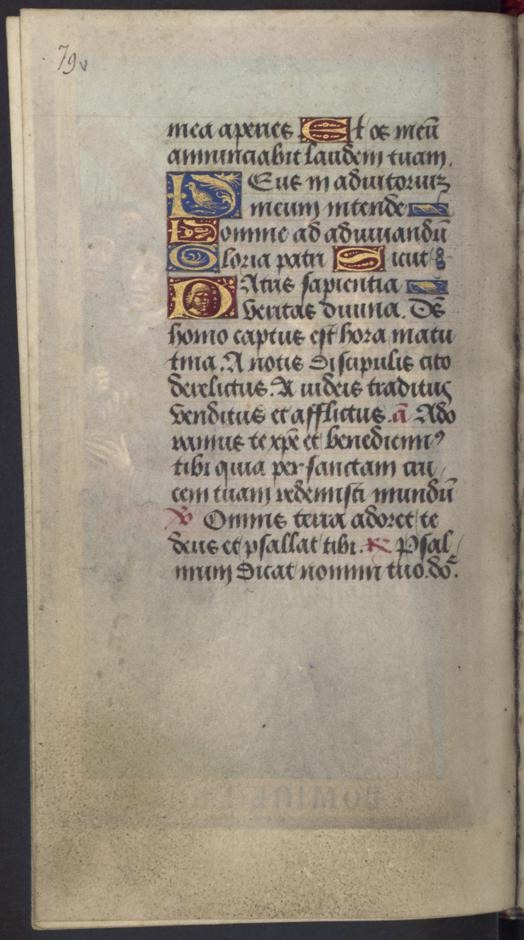 79v
mea aperies Et os meū
annunciabit laudem tuam.
Deus in adiutorium
meum intende
Domine ad adiuuandū
Gloria patri Sicut
Patris sapientia
veritas diuina. Ds̄
homo captus est hora matu
tina. A notis discipulis cito
derelictus. A iudeis traditus
venditus et afflictus. ā Ado
ramus te xp̄e et benedicim9
tibi quia per sanctam cru
cem tuam redemisti mundū
℣ Omnis terra adoret te
deus et psallat tibi. ℟ Psal
mum dicat nomini tuo. do.